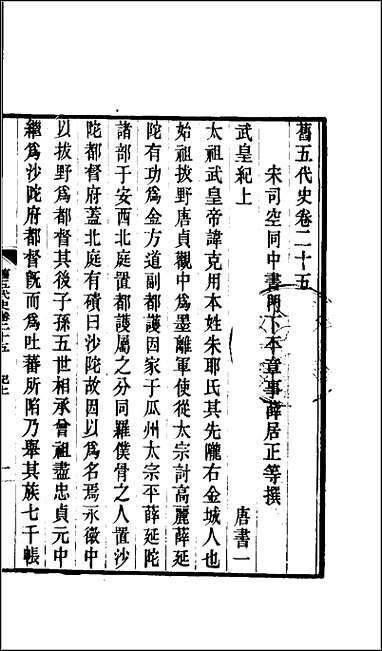 舊五代史卷二十五
宋司空同中書門下平章事薛居正等撰
武皇紀上
唐書一
太祖武皇帝諱克用本姓朱耶氏其先隴右金城人也
始祖拔野唐貞觀中為墨離軍使從太宗討高麗薛延
陀有功為金方道副都護因家于瓜州太宗平薛延陀
諸部于安西北庭置都護屬之分同羅僕骨之人置沙
陀都督府蓋北庭有磧曰沙陀故因以為名焉永徽中
以拔野為都督其後子孫五世相承曾祖盡忠貞元中
繼為沙陀府都督旣而為吐蕃所陷乃舉其族七千帳
舊五代史卷二十五 紀上
一